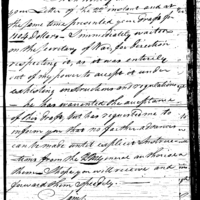 your Letter of the 2d instant and at
the same time presented your Draft for
1114 Dollars - I immediately waited on
the Secretary of War, for direction
respecting it, as it was entirely
out of my power to accept it under
existing Instructions and regulations
he has warranted the acceptance
of this draft, but has requested me to
inform you that no further advances
can be made until explicit Instruc-
tions from the General authorize
them - I hope you will receive and
forward them speedily.
I am